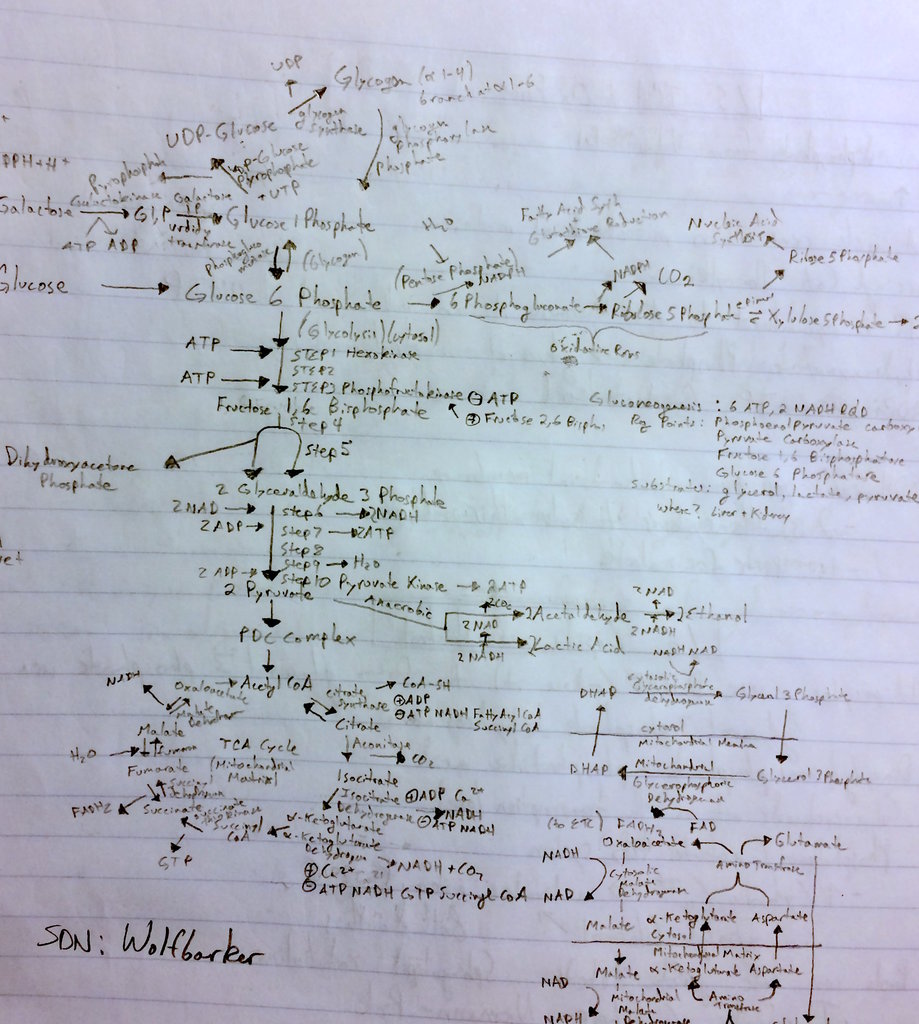 UDP
Glycogen (α 1-4)
branch at α 1-6
glycogen
synthase
UDP-Glucose
glycogen
phosphorylase
phosphate
UDP-Glucose
Pyrophosphate
+ UTP
PPH+H+
Pyrophosphate
Galactokinase
Galactose
G1P
uridyl
Glucose 1 Phosphate
ATP ADP
(Glycogen)
H2O
Fatty Acid Synth
Glutathione Reduction
Nucleic Acid
Synthesis
Ribose 5 Phosphate
(Pentose Phosphate)
NADPH
NADPH
CO2
Glucose
Glucose 6 Phosphate
6 Phosphogluconate
Ribulose 5 Phosphate
Xylulose 5 Phosphate
Oxidative Rxns
(Glycolysis) (cytosol)
ATP
STEP 1 Hexokinase
STEP 2
ATP
STEP 3 Phosphofructokinase ⊖ ATP
⊕ Fructose 2,6 Bisphos
Fructose 1,6 Bisphosphate
Step 4
Step 5
Gluconeogenesis : 6 ATP, 2 NADH RQD
Reg Points: Phosphoenol Pyruvate carboxy
Pyruvate Carboxylase
Fructose 1,6 Bisphosphatase
Glucose 6 Phosphatase
Substrates: glycerol, lactate, pyruvate
Where? Liver + Kidney
Dihydroxyacetone
Phosphate
2 Glyceraldehyde 3 Phosphate
2 NAD
Step 6 → 2NADH
2 ADP
Step 7 → 2ATP
Step 8
Step 9 → H2O
2 ADP
Step 10 Pyruvate Kinase → 2ATP
2 Pyruvate
Anaerobic
2CO2
2 Acetaldehyde
2 NAD
2 NADH
2 Ethanol
2 NAD
2 NADH
2 Lactic Acid
PDC Complex
NADH
Oxaloacetate
Acetyl CoA
citrate
synthase
CoA-SH
⊕ADP
⊖ATP NADH Fatty Acyl CoA
Succinyl CoA
Malate
Malate
Citrate
Aconitase
CO2
H2O
Fumarate
TCA Cycle
(Mitochondrial
Matrix)
Isocitrate
Isocitrate
Dehydrogenase
⊕ADP Ca2+
NADH
⊖ATP NADH
FADH2
Succinate
Succinyl
CoA
GTP
α-Ketoglutarate
α-Ketoglutarate
Dehydrogen
NADH + CO2
⊕ Ca2+
⊖ATP NADH GTP Succinyl CoA
NADH NAD
DHAP
cytosolic
Glycerophosphate
dehydrogenase
Glycerol 3 Phosphate
cytosol
Mitochondrial Membrane
DHAP
Mitochondrial
Glycerophosphate
Dehydrogenase
Glycerol 3 Phosphate
(to ETC) FADH2
FAD
Oxaloacetate
Glutamate
Amino Transferase
NADH
NAD
Cytosolic
Malate
Dehydrogenase
Malate
α-Ketoglutarate
Aspartate
Cytosol
Mitochondrial Matrix
Malate
α-Ketoglutarate
Aspartate
NAD
NADH
Mitochondrial
Malate
Dehydrogenase
Amino
Transferase
SDN: Wolfbarker